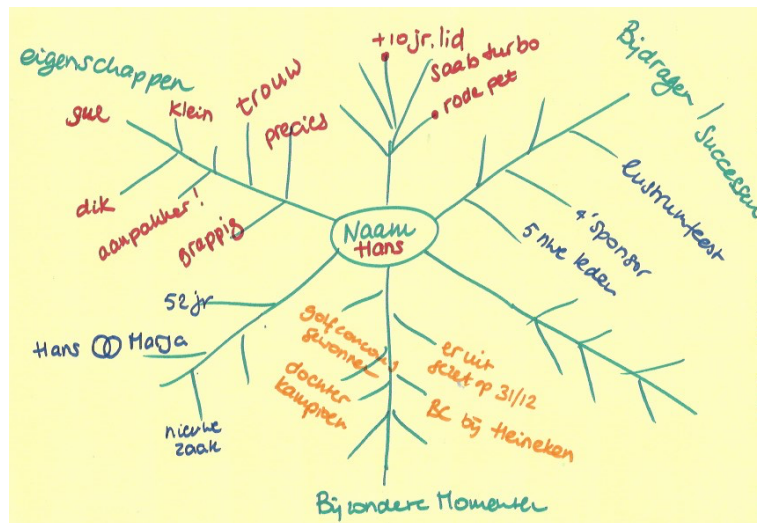 eigenschappen
gul
klein
trouw
precies
dik
aanpakker!
grappig
+10 jr. lid
saab turbo
rode pet
Bijdragen / Successen
lustrumfeest
4e sponsor
5 nwe leden
Naam
Hans
52 jr
Hans
Marja
nieuwe
zaak
golfconcours
gewonnen
dochter
kampioen
er uit
gezet op 31/12
BC bij Heineken
Bijzondere Momenten